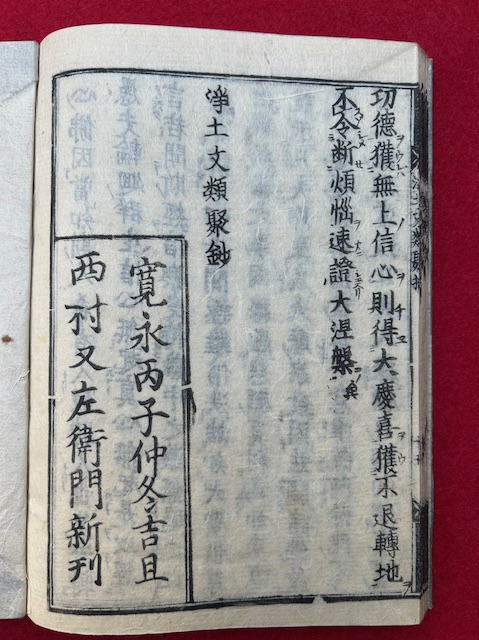 功德獲無上信心則得大慶喜獲不退轉地
不令断煩惱速證大涅槃矣
淨土文類聚鈔
寛永丙子仲冬吉旦
西村又左衛門新刋